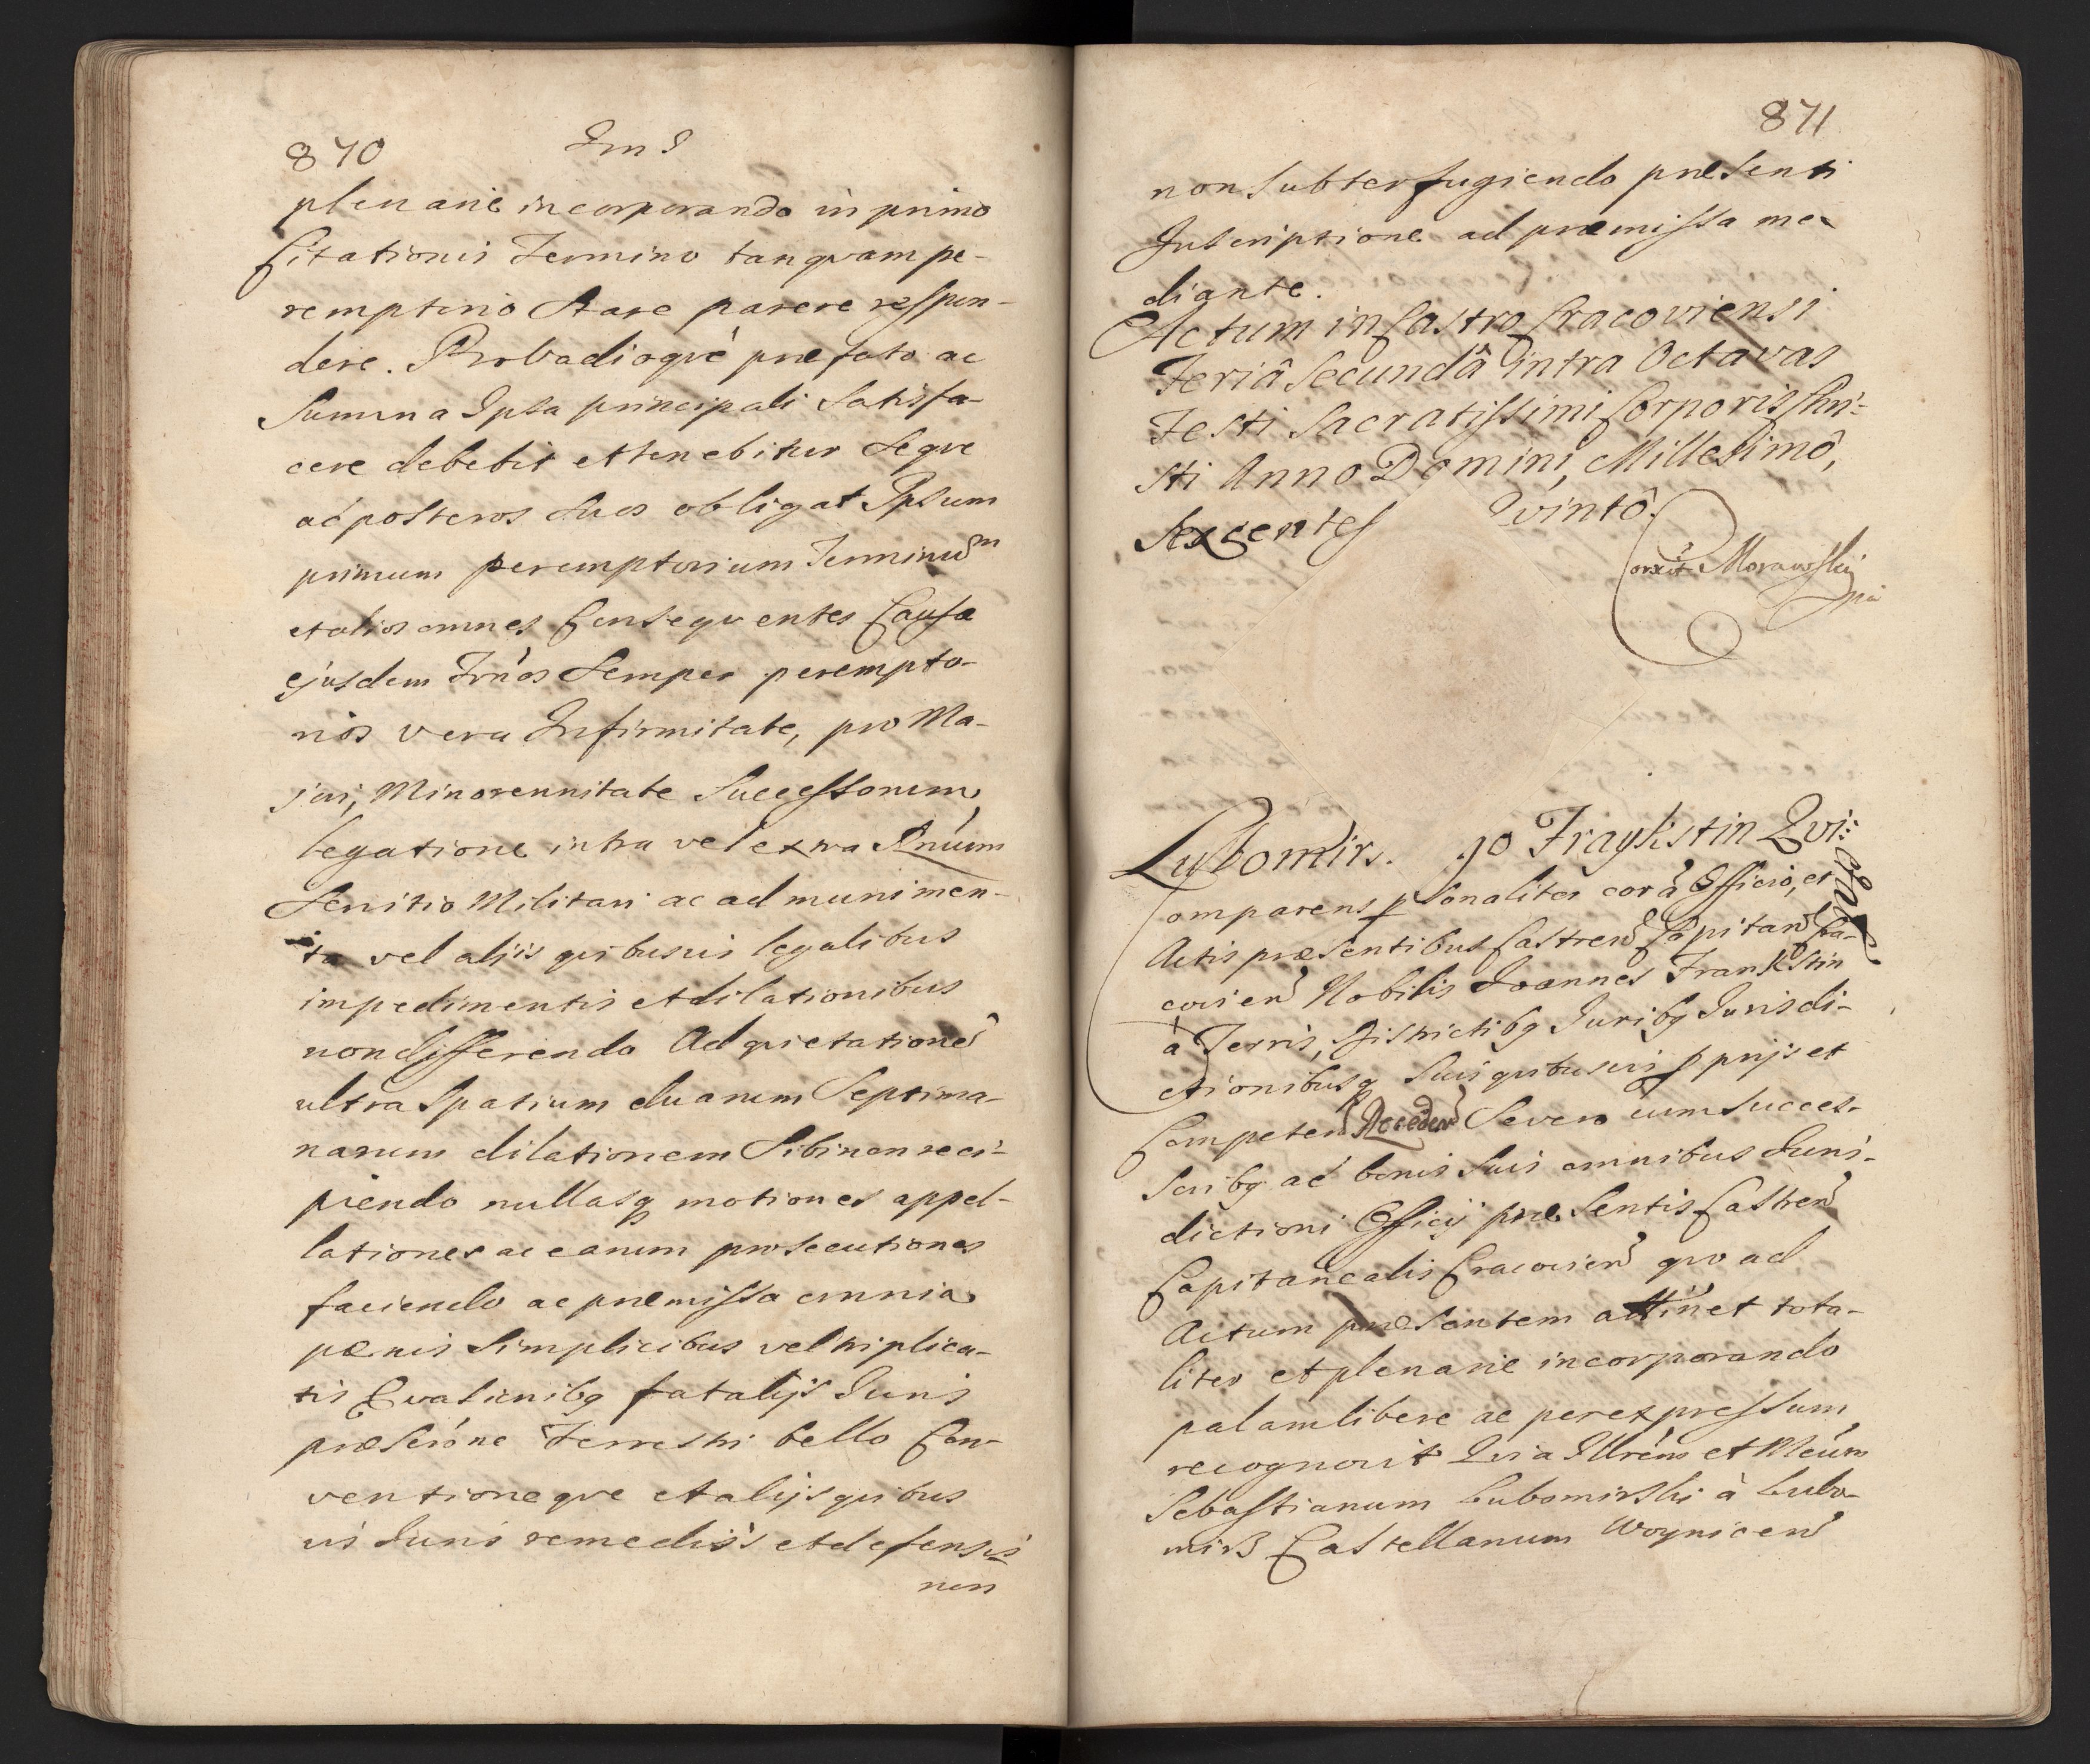 870
plenarie incorporando in primo
Citationis Termino tanqvam pe-
remptorio Stare parere respon-
dere. Probadioqve præfato ac
Summa Ipsa principali Satisfa-
cere debebit et tenebitur Seqve
ac posteros suos obligat Ipsum
primum peremptorium Terminum
et alios omnes Conseqventes Causæ
ejusdem Trnos Semper perempto-
rios vera Infirmitate, pro Ma-
jori, Minorennitate Successorum
legatione intra vel extra Rnúm
Servitio Militari ac ad munimen-
ta vel alijs qvibusvis legalibus
impedimentis et dilationibus
non differendo Ad qvietatione
ultra Spatium duarum Septima-
narum dilationem Sibi non reci-
piendo nullasq motiones appel-
lationes ac earum prosecutiones
faciendo ac præmissa omnia
pænis Simplicibus vel triplica-
tis Evasionibq fatalijs Juris
præscrióne Terrestri bello Con-
ventioneqve et alijs qvibus
vis Juris remedijs et defensis
non
871
non Subterfugiendo præsenti
Inscriptione ad præmissa me-
diante.
Actum in Castro Cracoviensi
Feriâ Secundâ intra Octavas
Festi Sacratissimi Corporis Chri-
sti Anno Domini, Millesimô,
Sexcentes Qvintô.
orxit Morawski
Lubomirs. Fraykstin Qvi:
etat
Comparens psonaliter corã Officio, et
Actis præsentibus Castren Capitan Cra-
covien Nobilis Joannes Frankstin
à Terris, Districtibq Juribq Jurisdi-
ctionibusq Suis qvibusvis pprijs et
Competen Receden Se vero cum Succes-
soribq ac bonis Suis omnibus Juris-
dictioni Officij præsentis Castren
Capitanealis Cracovien qvo ad
Actum præsentem attinet tota-
liter et plenarie incorporando
palam libere ac per expressum
recognovit Qvia Illrém et Mcúm
Sebastianum Lubomirski à Lubo-
mirz Castellanum Woynicen